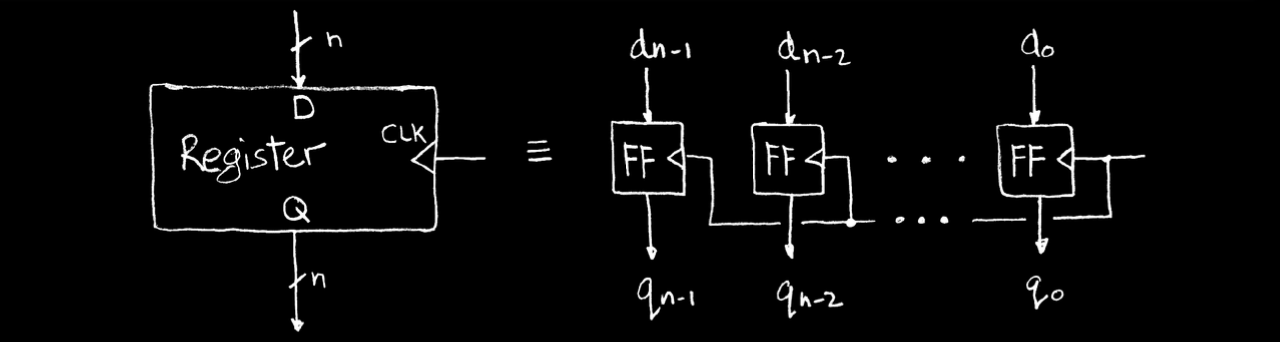 n
D
CLK
Register
Q
n
≡
dn-1 dn-2 d0
FF FF ... FF
...
qn-1 qn-2 q0